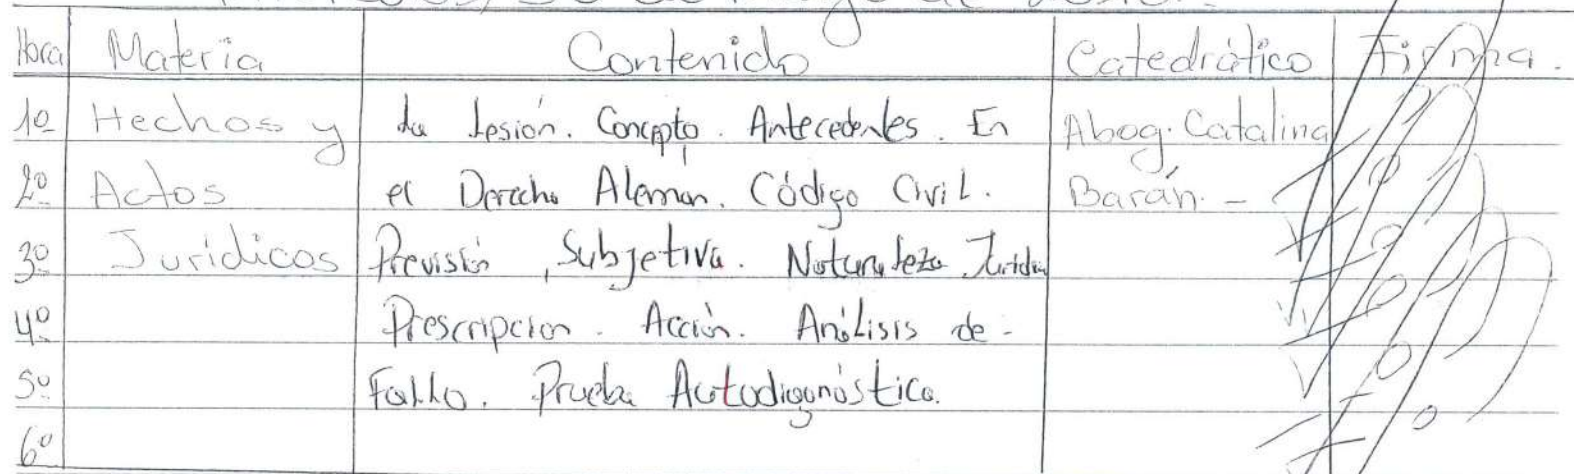 Hora Materia Contenido Catedrático Firma.
1º Hechos y La Lesión. Concepto. Antecedentes. En Abog. Catalina
2º Actos el Derecho Alemán. Código Civil. Barán. -
3º Jurídicos Previsión, Subjetiva. Naturaleza Jurídica
4º Prescripcion. Acción. Análisis de -
5º Fallo. Prueba Autodiagnóstica.
6º